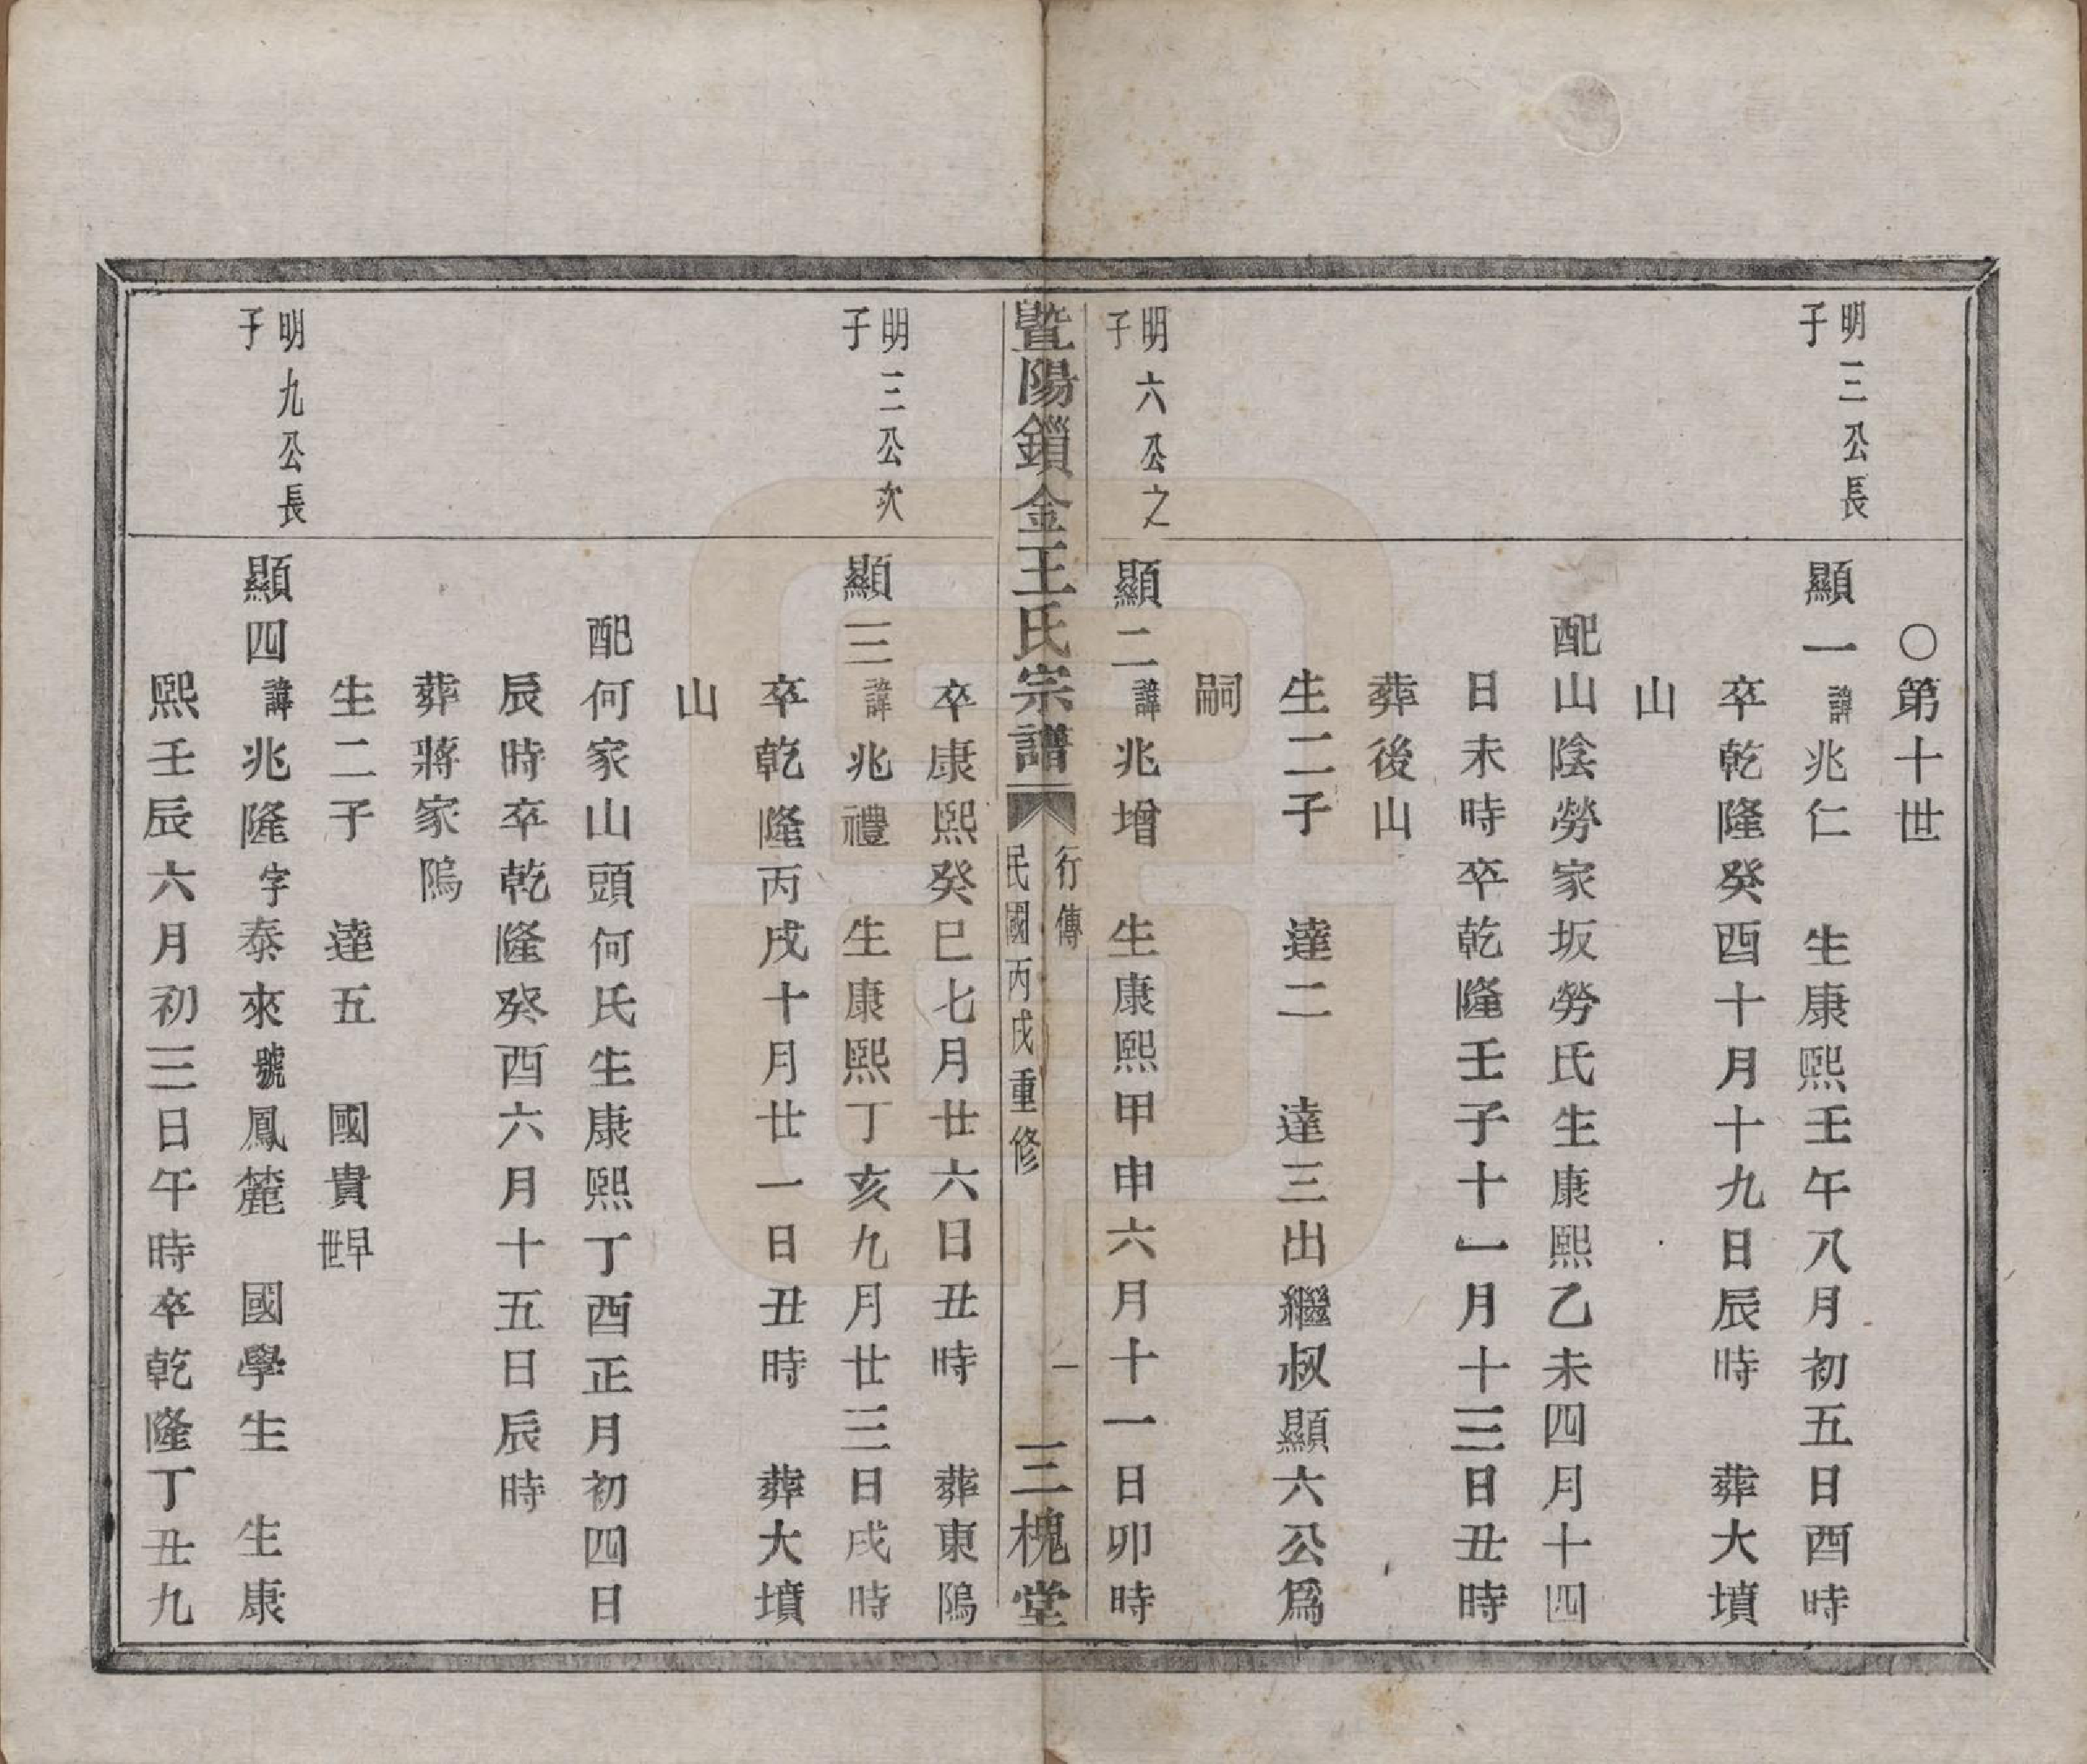 〇第十世
明三公長
子
顯一諱兆仁　生康熙壬午八月初五日酉時
卒乾隆癸酉十月十九日辰時　葬大墳
山
配山陰勞家坂勞氏生康熙乙未四月十四
日未時卒乾隆壬子十一月十三日丑時
葬後山
生二子　達二　達三出繼叔顯六公爲
嗣
明六公之
子
顯二諱兆增　生康熙甲申六月十一日卯時
暨陽鎖金王氏宗譜
行傳
民國丙戌重修
一
三槐堂
卒康熙癸巳七月廿六日丑時　葬東隖
明三公次
子
顯三諱兆禮　生康熙丁亥九月廿三日戌時
卒乾隆丙戌十月廿一日丑時　葬大墳
山
配何家山頭何氏生康熙丁酉正月初四日
辰時卒乾隆癸酉六月十五日辰時
葬蔣家隖
生二子　達五　國貴早世
明九公長
子
顯四諱兆隆字泰來號鳳麓　國學生　生康
熙壬辰六月初三日午時卒乾隆丁丑九